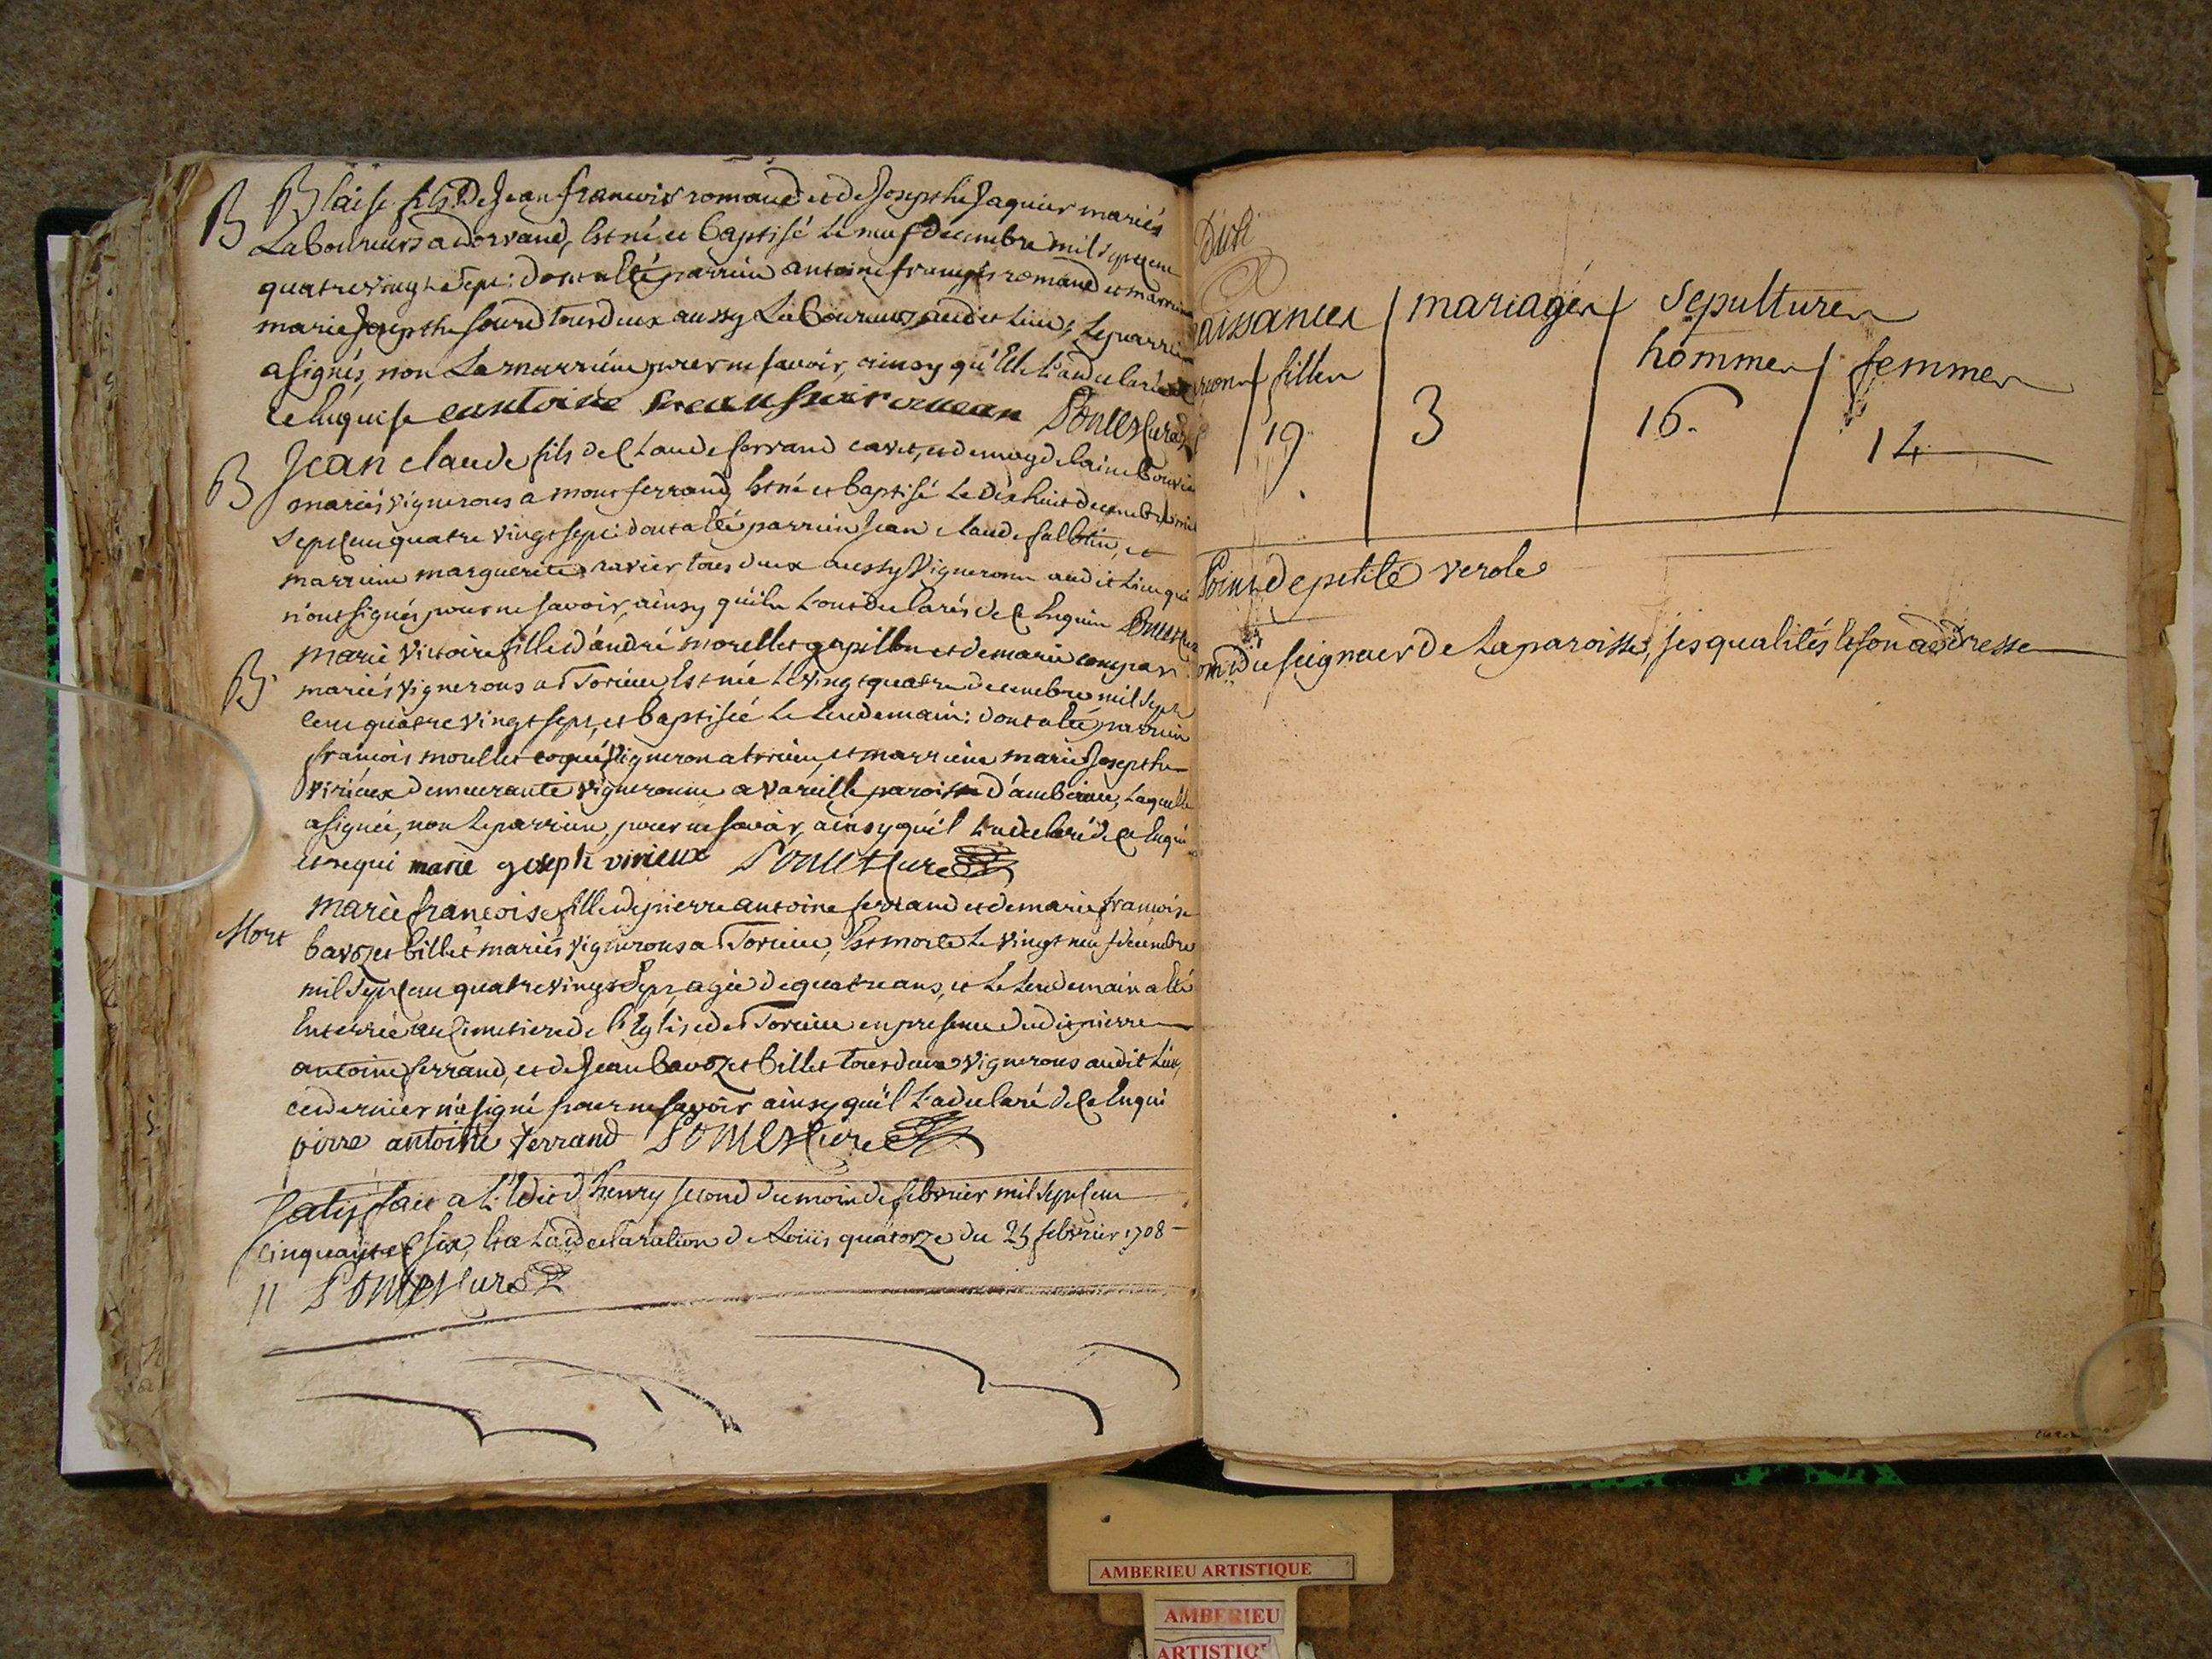 B Blaise fils De Jean francois romand et de Josepthe Jaquier mariés
Laboureurs a dorvand, Est né et baptisé Le neuf decembre mil sept cent
quatre vingt sept: dont a Eté parrein antoine françois romand et marreine
marie Josepthe tous deux aussy Laboureurs audit Lieu; Le parrein
a signés, non La marreine, pour ne savoir, ainsy qu'Elle L'a declaré de
ce Enquise Poncet Curé
B Jean claude fils de Claude ferrand cavet, et de magdelaine bouvier
mariés vignerons a montferrand, Est né et baptisé Le dix huit decembre mil
Sept Cent quatre vingt sept: dont a Eté parrein Jean claude et
marreine marguerite ravier tous deux aussy vignerons audit Lieu qui
n'ont signés pour ne savoir, ainsy qu'ils L'ont declarés de Ce Enquis Poncet Curé
B marie victoire fille d'andré morellet gapillon et de marie compan
mariés vignerons a Torcieu, Est née Le vingt quatre decembre mil Sept
Cent quatre vingt sept, et baptisée Le Lendemain: dont a Eté parrein
françois morellet vigneron a torcieu, et marreine marie Josepthe
virieux demeurante vigneronne a vareille paroisse d'amberieu, Laquelle
a signée, non Le parrein, pour ne savoir, ainsy qu'il L'a declaré de Ce Enquis
et requi marie joseph virieux Poncet Curé
Mort marie francoise fille de pierre antoine ferrand et de marie francoise
bavozet billet mariés vignerons a Torcieu, Est morte Le vingt neuf decembre
mil Sept Cent quatre vingt Sept, agée de quatre ans, et Le Lendemain a Eté
Enterrée au Cimetiere de L'Eglise de Torcieu en presence dudit pierre
antoine ferrand, et de Jean bavozet billet tous deux vignerons audit Lieu,
ce dernier n'a signé pour ne savoir ainsy qu'il L'a declaré de Ce Enqui
pierre antoine ferrand Poncet Curé
Satisfait a L'Edit d'henry second du mois de febvrier mil Sept Cent
cinquante Six, Et a La declaration de Louis quatorze du 25 febvrier 1708
Poncet Curé
aissances mariages Sepultures
filles hommes femmes
19. 3 16. 14
Point de petite verole
om du seigneur de La paroisse, ses qualités Et son addresse
AMBERIEU ARTISTIQUE
AMBERIEU
ARTISTIQ